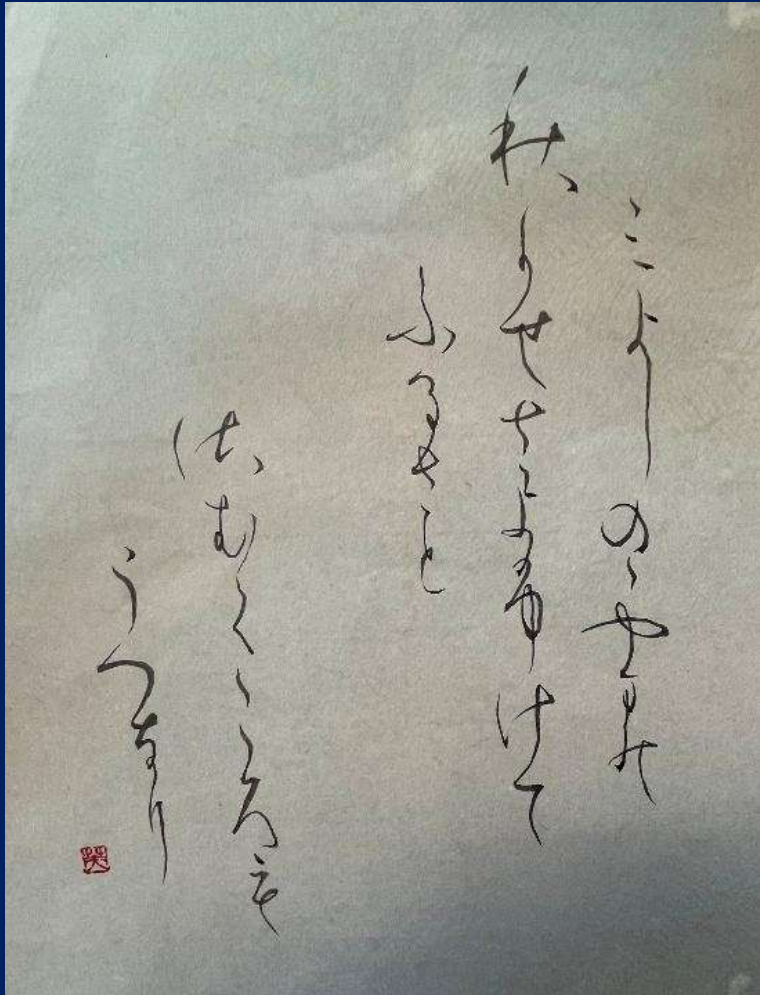 みよしのゝやまの
秋かせさよふけて
ふるさと
さむくころも
うつなり